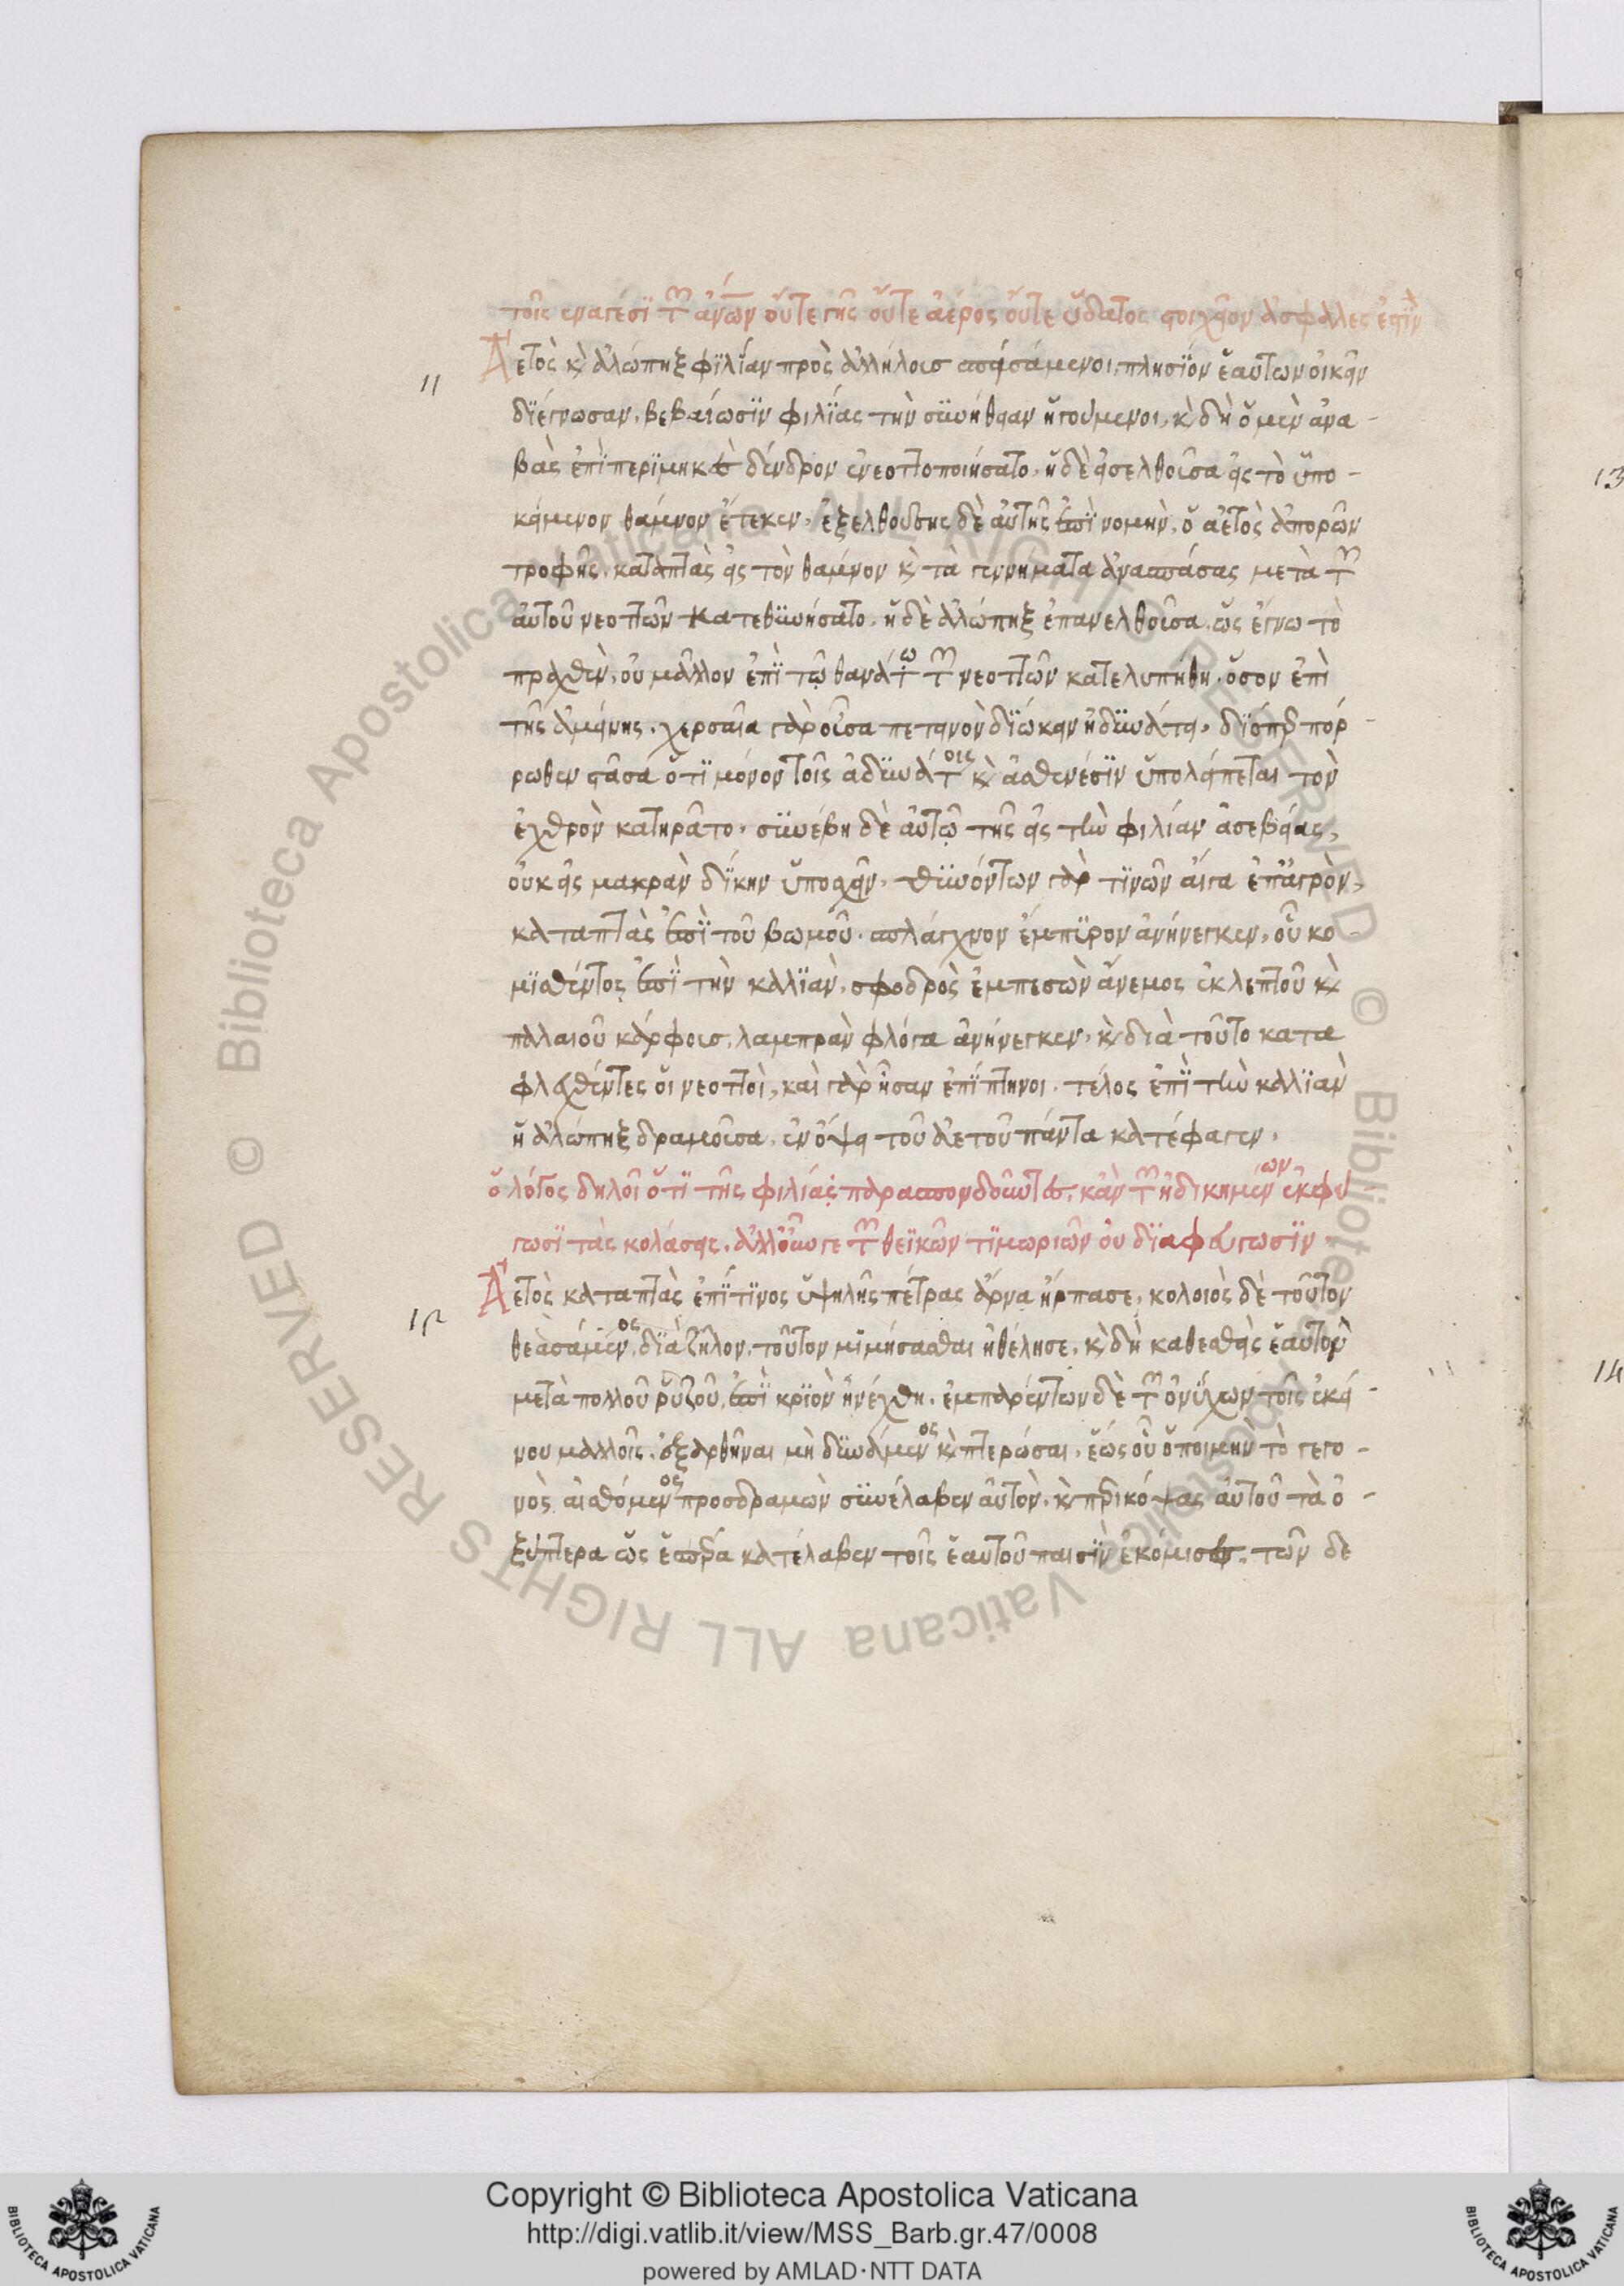 τοῖς ἐναγέσι τῶν ἀνων οὔτε γῆς οὔτε ἀέρος οὔτε ὕδατος στοιχεῖον ἀσφαλές ἐστϊν
Ἀετὸς κ̀ ἀλώπηξ φϊλΐαν πρὸς ἀλλήλους σπεισάμενοι, πλησΐον ἑαυτων οἰκεῖν
11
δϊέγνωσαν, βεβαίωσϊν φιλΐας τὴν συνήθειαν ἡγούμενοι, κ̀ δὴ ὁ μὲν ἀνα-
βὰς ἐπὶ περϊμηκες δένδρον ἐνεοττοποιήσατο, ἡ δὲ εἰσελθοῦσα εἰς τὸ ὑπο-
κείμενον θάμνον ἔτεκεν, ἐξελθούσης δὲ αὐτῆς ἐπῒ νομὴν, ὁ αἐτὸς ἀπορῶν
τροφῆς, καταπτὰς εἰς τὸν θάμνον κ̀ τὰ γεννήματα ἀνασπάσας μετὰ τῶν
αὐτοῦ νεοττῶν κατεθϋνήσατο, ἡ δὲ ἀλώπηξ ἐπανελθοῦσα, ὡς ἔγνω τὸ
πραχθὲν, οὐ μᾶλλον ἐπῒ τῷ θανάτω τῶν νεοττῶν κατελυπήθη, ὅσον ἐπὶ
τῆς ἀμύνης, χερσαῖα γὰρ οὖσα πετεινὸν δϊώκειν ἠδϋνάτει, δϊόπερ πόρ-
ρωθεν στᾶσα ὅτϊ μόνον τοῖς ἀδϋνάτοις κ̀ ἀσθενέσϊν ὑπολείπεται τὸν
ἐχθρὸν κατηρᾶτο, σϋνέβη δὲ αὐτῷ τῆς εἰς τὴν φιλίαν ἀσεβείας,
οὐκ εἰς μακρὰν δΐκην ὑποσχεῖν, θϋόντων γὰρ τϊνῶν αἶγα ἐπ' ἀγρὸν,
καταπτὰς ἐπῒ τοῦ βωμοῦ, σπλάγχνον ἔμπϋρον ἀνήνεγκεν, οὗ κο-
μϊσθέντος ἐπῒ τὴν καλϊὰν, σφοδρὸς ἐμπεσὼν ἄνεμος ἐκ λεπτοῦ κ̀
παλαιοῦ κάρφους, λαμπρὰν φλόγα ἀνήνεγκεν, κ̀ διὰ τοῦτο κατα
φλεχθέντες οἱ νεοττοὶ, καὶ γὰρ ἦσαν ἔπϊ πτηνοι, τέλος ἐπῒ τὴν καλϊὰν
ἡ ἀλώπηξ δραμοῦσα, ἐν ὄψει τοῦ ἀετοῦ πάντα κατέφαγεν,
ὁ λόγος δηλοῖ ὅτϊ τῆς φιλίας παρασπονδοῦντες, κἂν τῶν ἠδικημένων ἐκφύ
γωσϊ τὰς κολάσεις, ἀλλ' οὖν γε τῶν θεϊκῶν τϊμωριῶν οὐ δϊαφεύγωσϊν
Ἀετὸς καταπτὰς ἐπΐ τϊνος ὑψηλῆς πέτρας ἄρνα ἥρπασε, κολοιὸς δὲ τοῦτον
12
θεασάμενος, δϊὰ ζῆλον, τοῦτον μϊμήσασθαι ἠθέλησε, κ̀ δὴ καθεσθεὶς ἑαυτὸν
μετὰ πολλοῦ ῥύζου, ἐπῒ κρϊὸν ἠνέχθη, ἐμπαρέντων δὲ τῶν ὀνΰχων τοῖς ἐκεί-
νου μαλλοῖς, ἐξαρθῆναι μὴ δϋνάμενος κ̀ πτερώσαι, ἕως οὗ ὁ ποιμην τὸ γεγο-
νὸς αἰσθόμενος προσδραμὼν σϋνέλαβεν αὐτὸν, κ̀ περικόψας αὐτοῦ τὰ ὀ-
ξύπτερα ὡς ἑσπέρα κατέλαβεν τοῖς ἑαυτοῦ παισὶν ἐκόμισεν, τῶν δε
13
14
© Biblioteca Apostolica Vaticana ALL RIGHTS RESERVED
Copyright © Biblioteca Apostolica Vaticana
http://digi.vatlib.it/view/MSS_Barb.gr.47/0008
powered by AMLAD·NTT DATA
BIBLIOTECA APOSTOLICA VATICANA
BIBLIOTECA APOSTOLICA VATICANA